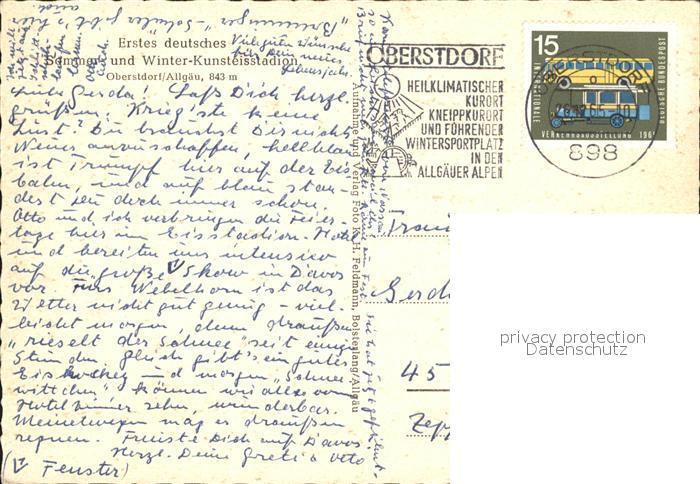 Erstes deutsches
Sommer- und Winter-Kunsteisstadion
Oberstdorf/Allgäu, 843 m
Viel gute Wünsche
für Dein neues
Lebensjahr.
Liebe Gerda! Laß Dich herzl.
grüßen. Kriegste keine
Lust? Du brauchst Dir nichts
Neues anzuschaffen, hellblau
ist Trumpf hier auf der Eis-
bahn, und auf blau stan-
dest Du doch immer schon.
Otto und ich verbringen die Feier-
tage hier im Eisstadion-Hotel
und bereiten uns intensiv
auf die "große" Show in Davos
vor. Fürs Nebelhorn ist das
Wetter nicht gut genug - viel-
leicht morgen, denn draußen
"rieselt der Schnee" seit einigen
Stunden. Gleich gibt's ein gutes
Eishockey und morgen "Schnee-
wittchen" können wir alles vom
Hotelzimmer sehn, wunderbar.
Meinetwegen mag es draußen
regnen. Freuste Dich auf Davos
Herzl. Deine Greti & Otto
(V Fenster)
Aufnahme und Verlag Foto K. H. Feldmann, Bolsterlang/Allgäu
OBERSTDORF
HEILKLIMATISCHER
KURORT
KNEIPPKURORT
UND FÜHRENDER
WINTERSPORTPLATZ
IN DEN
ALLGÄUER ALPEN
15
DEUTSCHE BUNDESPOST
INTERNATIONALE
VERKEHRSAUSSTELLUNG 1965
898
Frau
Gerd
45
Zepp
privacy protection
Datenschutz